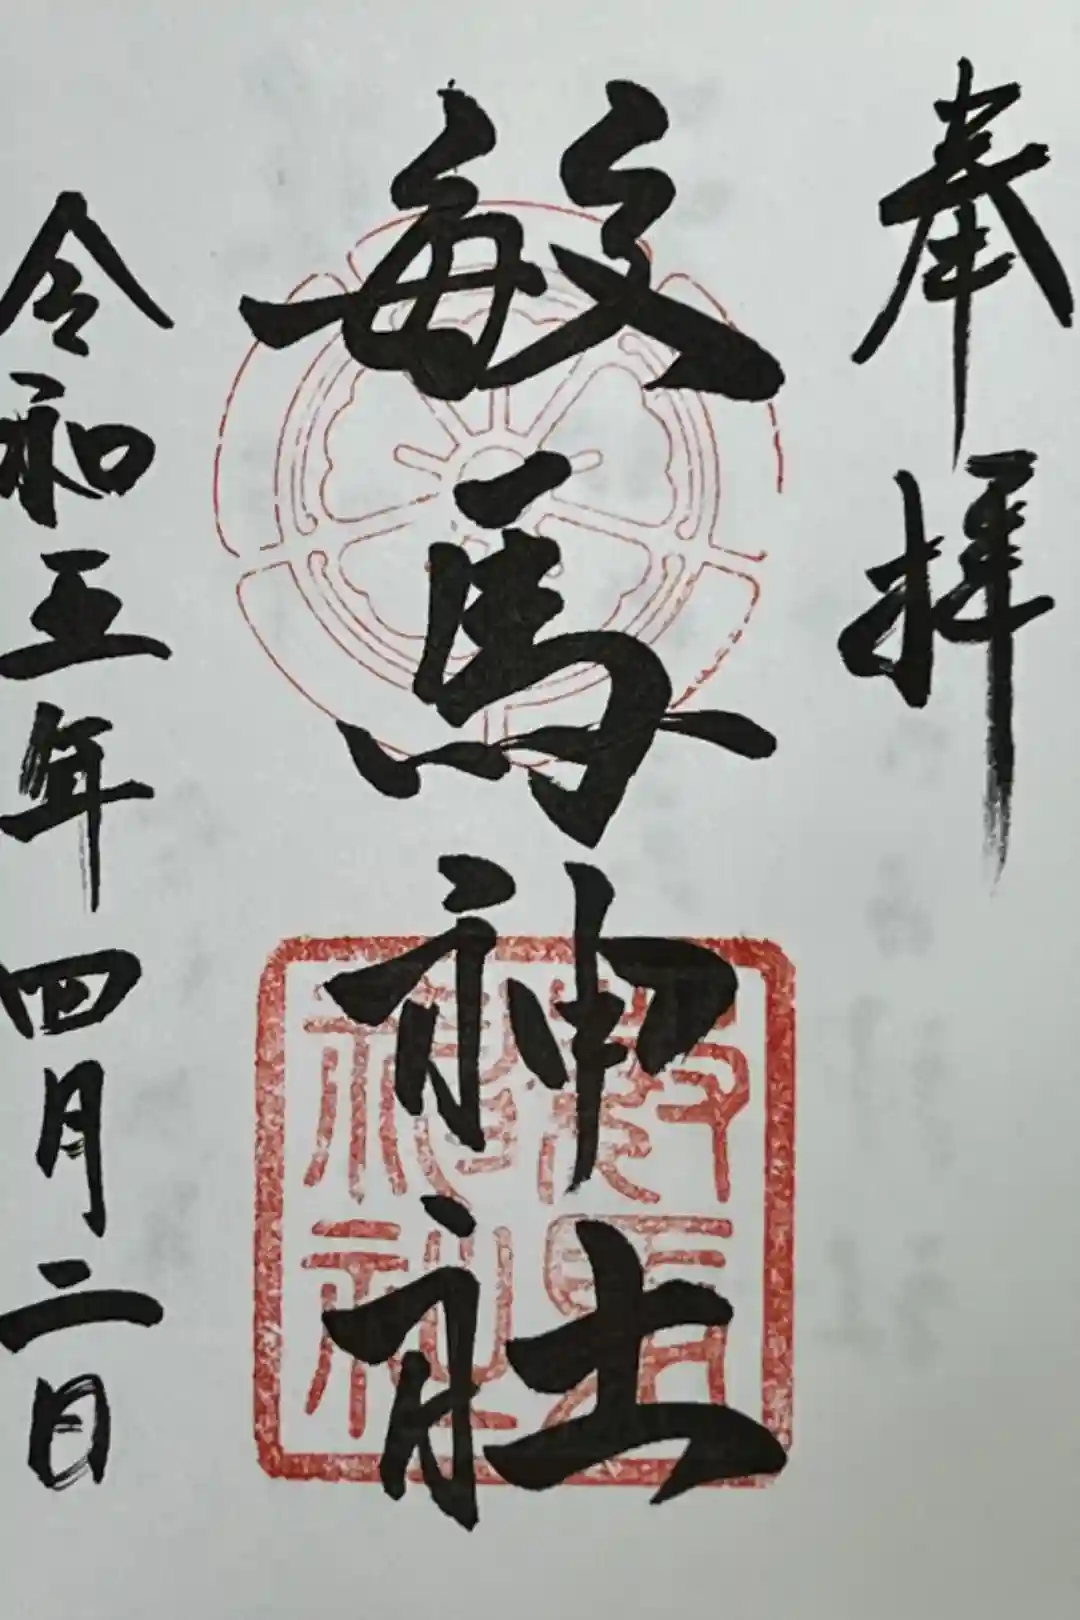 奉拝
敏馬神社
令和五年四月二日
敏馬神社